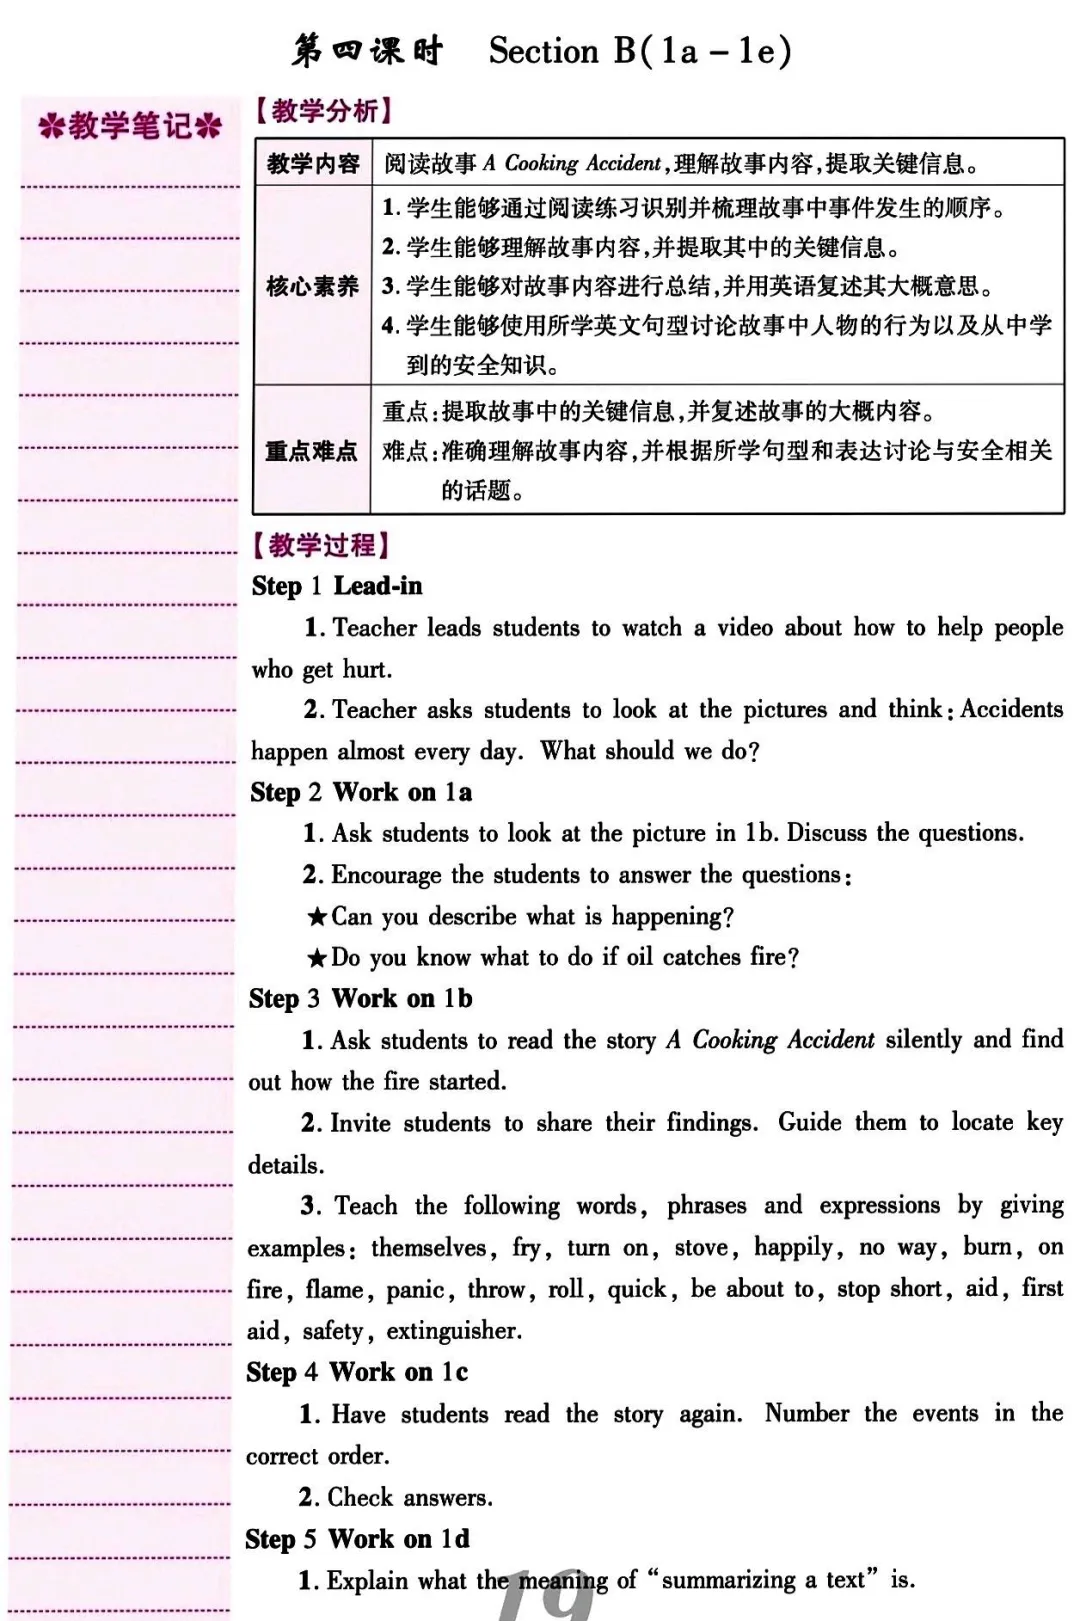 第四课时 Section B(1a－1e)
✽教学笔记✽
【教学分析】
教学内容 阅读故事 A Cooking Accident,理解故事内容,提取关键信息。
核心素养
1. 学生能够通过阅读练习识别并梳理故事中事件发生的顺序。
2. 学生能够理解故事内容,并提取其中的关键信息。
3. 学生能够对故事内容进行总结,并用英语复述其大概意思。
4. 学生能够使用所学英文句型讨论故事中人物的行为以及从中学
到的安全知识。
重点难点
重点:提取故事中的关键信息,并复述故事的大概内容。
难点:准确理解故事内容,并根据所学句型和表达讨论与安全相关
的话题。
【教学过程】
Step 1 Lead-in
1. Teacher leads students to watch a video about how to help people
who get hurt.
2. Teacher asks students to look at the pictures and think: Accidents
happen almost every day. What should we do?
Step 2 Work on 1a
1. Ask students to look at the picture in 1b. Discuss the questions.
2. Encourage the students to answer the questions:
★Can you describe what is happening?
★Do you know what to do if oil catches fire?
Step 3 Work on 1b
1. Ask students to read the story A Cooking Accident silently and find
out how the fire started.
2. Invite students to share their findings. Guide them to locate key
details.
3. Teach the following words, phrases and expressions by giving
examples: themselves, fry, turn on, stove, happily, no way, burn, on
fire, flame, panic, throw, roll, quick, be about to, stop short, aid, first
aid, safety, extinguisher.
Step 4 Work on 1c
1. Have students read the story again. Number the events in the
correct order.
2. Check answers.
Step 5 Work on 1d
1. Explain what the meaning of “summarizing a text” is.
19